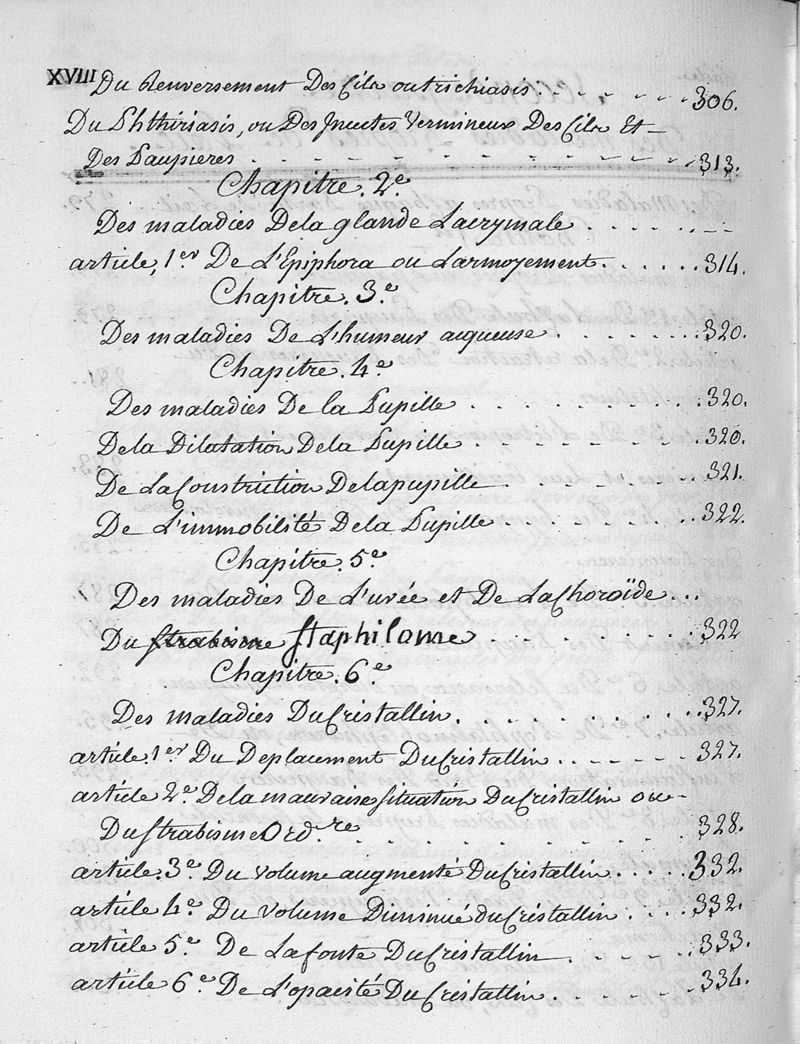 XVIII
Du Renversement Des Cils ou trichiasis . . . . . . . 306.
Du Phthiriasis, ou Des Insectes Vermineux Des Cils Et -
Des Paupieres . . . . . . . . . . . . . 313.
Chapitre. 2e
Des maladies Dela glande Lacrymale . . . . . .
article, 1er De L'Epiphora ou Larmoyement . . . . . . . 314.
Chapitre. 3e
Des maladies De L'humeur aiqueuse . . . . . . . 320.
Chapitre. 4e
Des maladies De la Pupille . . . . . . . . . . 320.
Dela Dilatation Dela Pupille . . . . . . . . . . 320.
De La Constriction Delapupille . . . . . . . . . 321.
De L'immobilité Dela Pupille . . . . . . . . . 322.
Chapitre. 5e
Des maladies De L'uvée et De La Choroïde . . .
Du strabisme staphilome . . . . . . . . . . 322
Chapitre. 6e
Des maladies Du Cristallin . . . . . . . . . . 327.
article. 1er Du Deplacment Du Cristallin . . . . . . 327.
article 2e Dela mauvaise situation Du Cristallin ou -
Du strabisme Ord.re . . . . . . . . . . . . 328.
article. 3e Du volume augmenté Du Cristallin . . . . . 332.
article 4e Du Volume Diminué du Cristallin . . . . . 332.
article 5e De La fonte Du Cristallin . . . . . . . 333.
article 6e De L'opacité Du Cristallin . . . . . . . . 334.